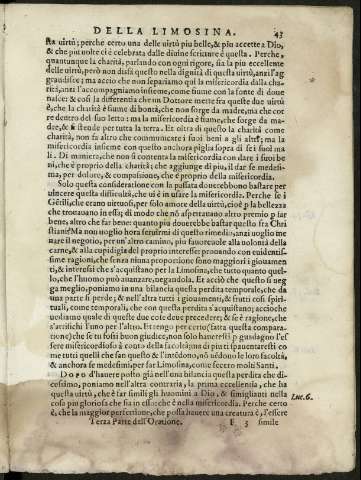 DELLA LIMOSINA. 43
sta virtù; perche certo una delle virtù piu belle, & piu accette a Dio,
& che piu nelle è celebrata dalle divine scritture è questa. Perche,
quantunque la charità, parlando con ogni rigore, sia la piu eccellente
delle virtù, però non disfà questo nella dignità di questa virtù, anzi l'ag
grandisce; ma accio che non separiamo qui la misericordia dalla cha-
rità, anzi l'accompagniamo insieme, come fiume con la fonte di doue
nasce: & così la differentia che un Dottore mette fra queste due virtù
è, che la charità è fiume di bontà, che non sorge da madre, ma che cor
re dentro del suo letto: ma la misericordia è fiume, che sorge da ma-
dre, & si stende per tutta la terra. Et oltra di questo la charità come
charità, non fa altro che communicare i suoi beni a gli altri; ma la
misericordia insieme con questo anchora piglia sopra di se i suoi ma
li. Di maniera, che non si contenta la misericordia con dare i suoi be
ni, che è proprio della charità; che aggiunge di piu, il dar se medesi-
ma, per dolore, & compassione, che è proprio della misericordia.
Solo questa consideratione con la passata dourebbono bastare per
uincere questa difficultà, che ui è in usare la misericordia. Perche se i
Gétili, che erano virtuosi, per solo amore della virtù, cioè p la bellezza
che trouauano in essa; di modo che nō aspettauano altro premio p far
bene, altro che far bene: quanto piu dourebbe bastar questo fra Chri
stiani? Ma non uoglio hora seruirmi di questo rimedio, anzi uoglio me
nare il negotio, per un altro camino, piu fauoreuole alla uolontà della
carne, & alla cupidigia del proprio interesse: prouando con euidentis-
sime ragioni, che senza niuna proportione sono maggiori i giouamen
ti, & interessi che s'acquistano per la Limosina, che tutto quanto quel-
lo, che l'huomo può auanzare, negandola. Et acciò che questo si ueg
ga meglio, poniamo in una bilancia questa perdita temporale, che da
una parte si perde; & nell'altra tutti i giouamenti, & frutti così spiri-
tuali, come temporali, che con questa perdita s'acquistano; accioche
uediamo quale di queste due cose deue precedere; & se è ragione, che
si sacrifichi l'uno per l'altro. Et tengo per certo (fatta questa compara-
tione) che se tu fossi buon giudice, non solo haueresti p guadagno l'es
sere misericordioso à costo della facoltà,
me tutti quelli che fan questo & l'intēdono, nō uēdono le loro facoltà,
& anchora se medesimi, per far Limosina, come secero molti Santi.
Dopo d'hauere posto già nell'una bilancia questa perdita che di-
cessimo, poniamo nell'altra contraria, la prima eccellentia, che ha
questa virtù, che è far simili gli huomini a Dio, & simiglianti nella
cosa piu gloriosa che sia in esso: che è nella misericordia. Perche certo
è, che la maggior perfettione, che possa hauere una creatura è, l'essere
Luc. 6.
Terza Parte dell'Oratione. F 3 simile